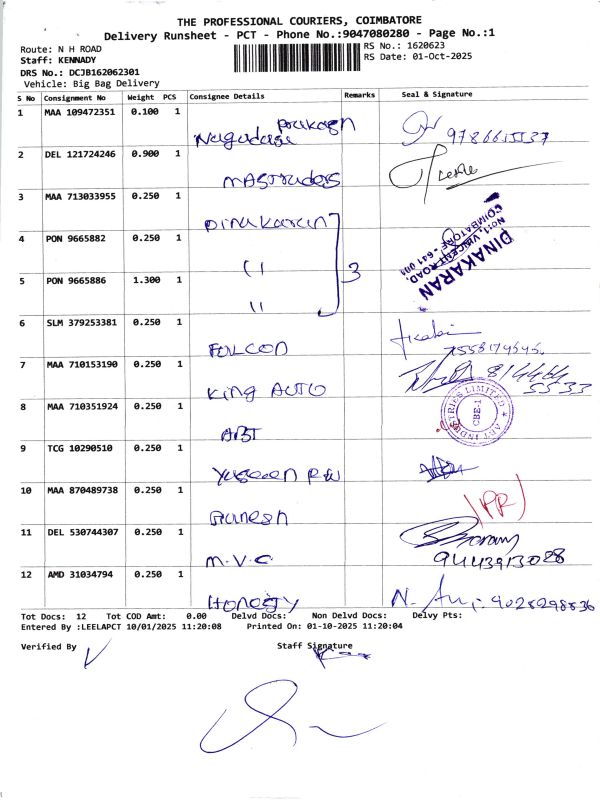 THE PROFESSIONAL COURIERS, COIMBATORE
Delivery Runsheet - PCT - Phone No.:9047080280 - Page No.:1
Route: N H ROAD
RS No.: 1620623
Staff: KENNADY
RS Date: 01-Oct-2025
DRS No.: DCJB162062301
Vehicle: Big Bag Delivery
S No Consignment No Weight PCS Consignee Details Remarks Seal & Signature
1 MAA 109472351 0.100 1 prakash
2 DEL 121724246 0.900 1
3 MAA 713033955 0.250 1 Dinakaran
4 PON 9665882 0.250 1 11
5 PON 9665886 1.300 1 11 3
No:1, VINCENT ROAD,
COIMBATORE - 641 001
DINAKARAN
6 SLM 379253381 0.250 1 FALCON
7 MAA 710153190 0.250 1 King AUTO
8 MAA 710351924 0.250 1 ABT
ABT INDUSTRIES LIMITED
CBE-1
9 TCG 10290510 0.250 1
10 MAA 870489738 0.250 1 Ganesh
11 DEL 530744307 0.250 1 M.V.C
9443913028
12 AMD 31034794 0.250 1 Honesty 9028298836
Tot Docs: 12 Tot COD Amt: 0.00 Delvd Docs: Non Delvd Docs: Delvy Pts:
Entered By :LEELAPCT 10/01/2025 11:20:08 Printed On: 01-10-2025 11:20:04
Verified By Staff Signature